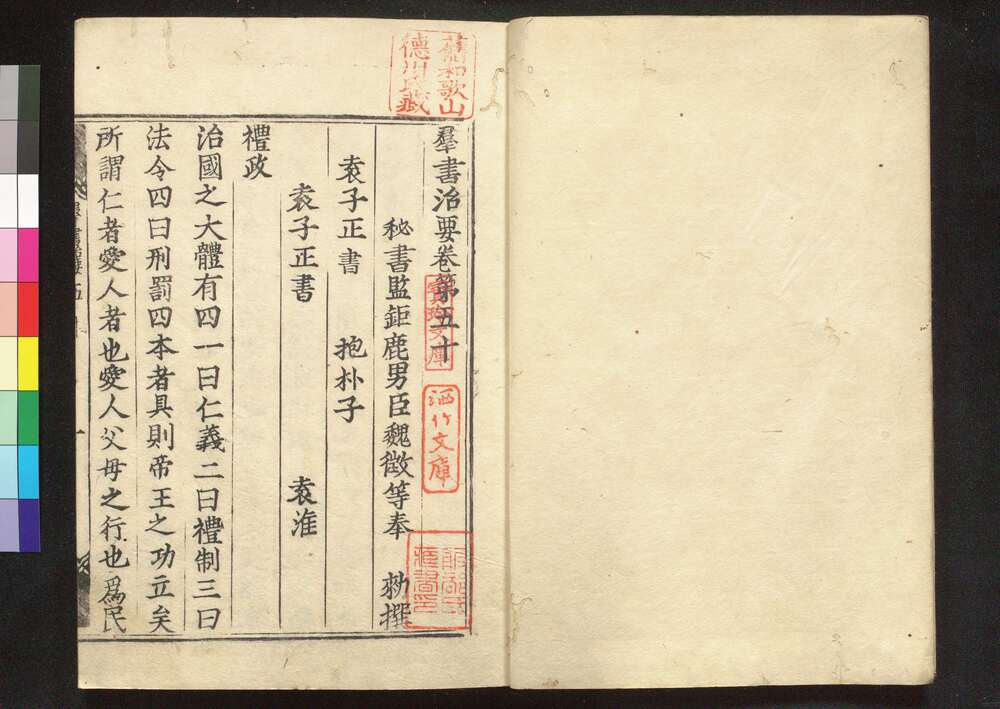 羣書治要卷第五十
秘書監鉅鹿男臣魏徵等奉 勑撰
袁子正書 抱朴子
袁子正書 袁淮
禮政
治國之大體有四一曰仁義二曰禮制三曰
法令四曰刑罰四本者具則帝王之功立矣
所謂仁者愛人者也愛人父母之行也爲民
舊和歌山
德川氏藏
寶玲文庫
洒竹文庫